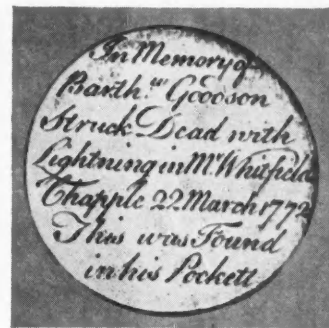 In Memory of
Barth.w Goodson
Struck Dead with
Lightning in Mr Whitfield
Chapple 22 March 1772
This was Found
in his Pockett